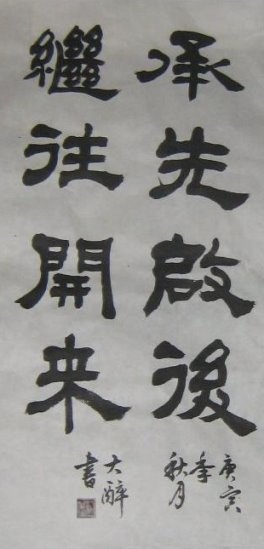 承先啟後
繼往開来
庚寅季
秋月
大醉
書